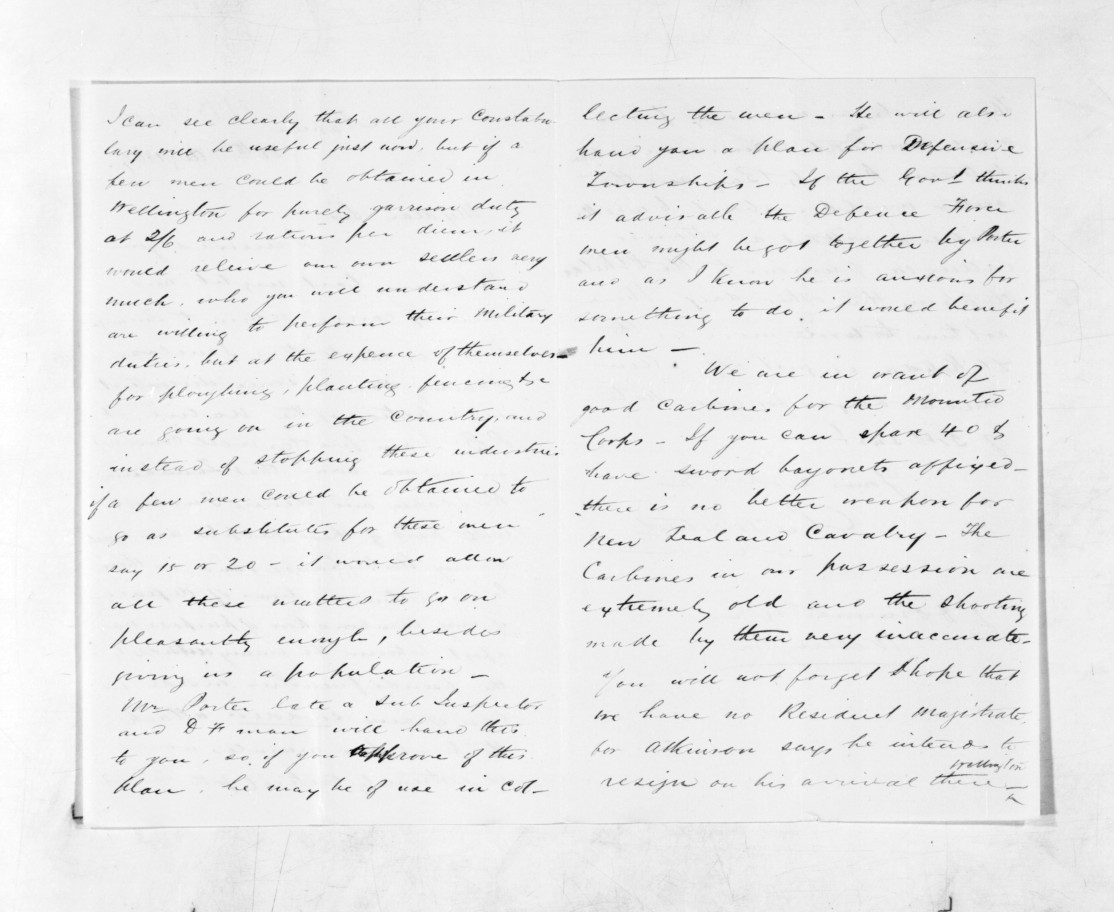 I can see clearly that all your Constabu
lary will be useful just now. but if a
few men could be obtained in
Wellington for purely garrison duty
at 2/6 and rations per diem, it
would releive our own settlers very
much. who you will understand
are willing to perform their Military
duties. but at the expence of themselves
for ploughing, planting, fencing &c
are going on in the Country, and
instead of stopping these industries
if a few men could be obtained to
go as substitutes for these men
say 15 or 20 - it would allow
all these matters to go on
pleasantly enough, besides
giving us a population -
Mr Porter late a Sub Inspector
and D F man will hand this
to you, so, if you approve of this
plan. he may be of use in col-
lecting the men - He will also
hand you a plan for Defensive
Townships - If the Govt thinks
it advisable the Defence Force
men might be got together by Porter
and as I know he is anxious for
something to do, it would benefit
him -
We are in want of
good Carbines for the Mounted
Corps - If you can spare 40 &
have sword bayonets affixed -
there is no better weapon for
New Zealand Cavalry - The
Carbines in our possession are
extremely old and the shooting
made by them very inaccurate -
You will not forget I hope that
we have no Resident Magistrate,
for Atkinson says he intends to
Wellington
resign on his arrival there -